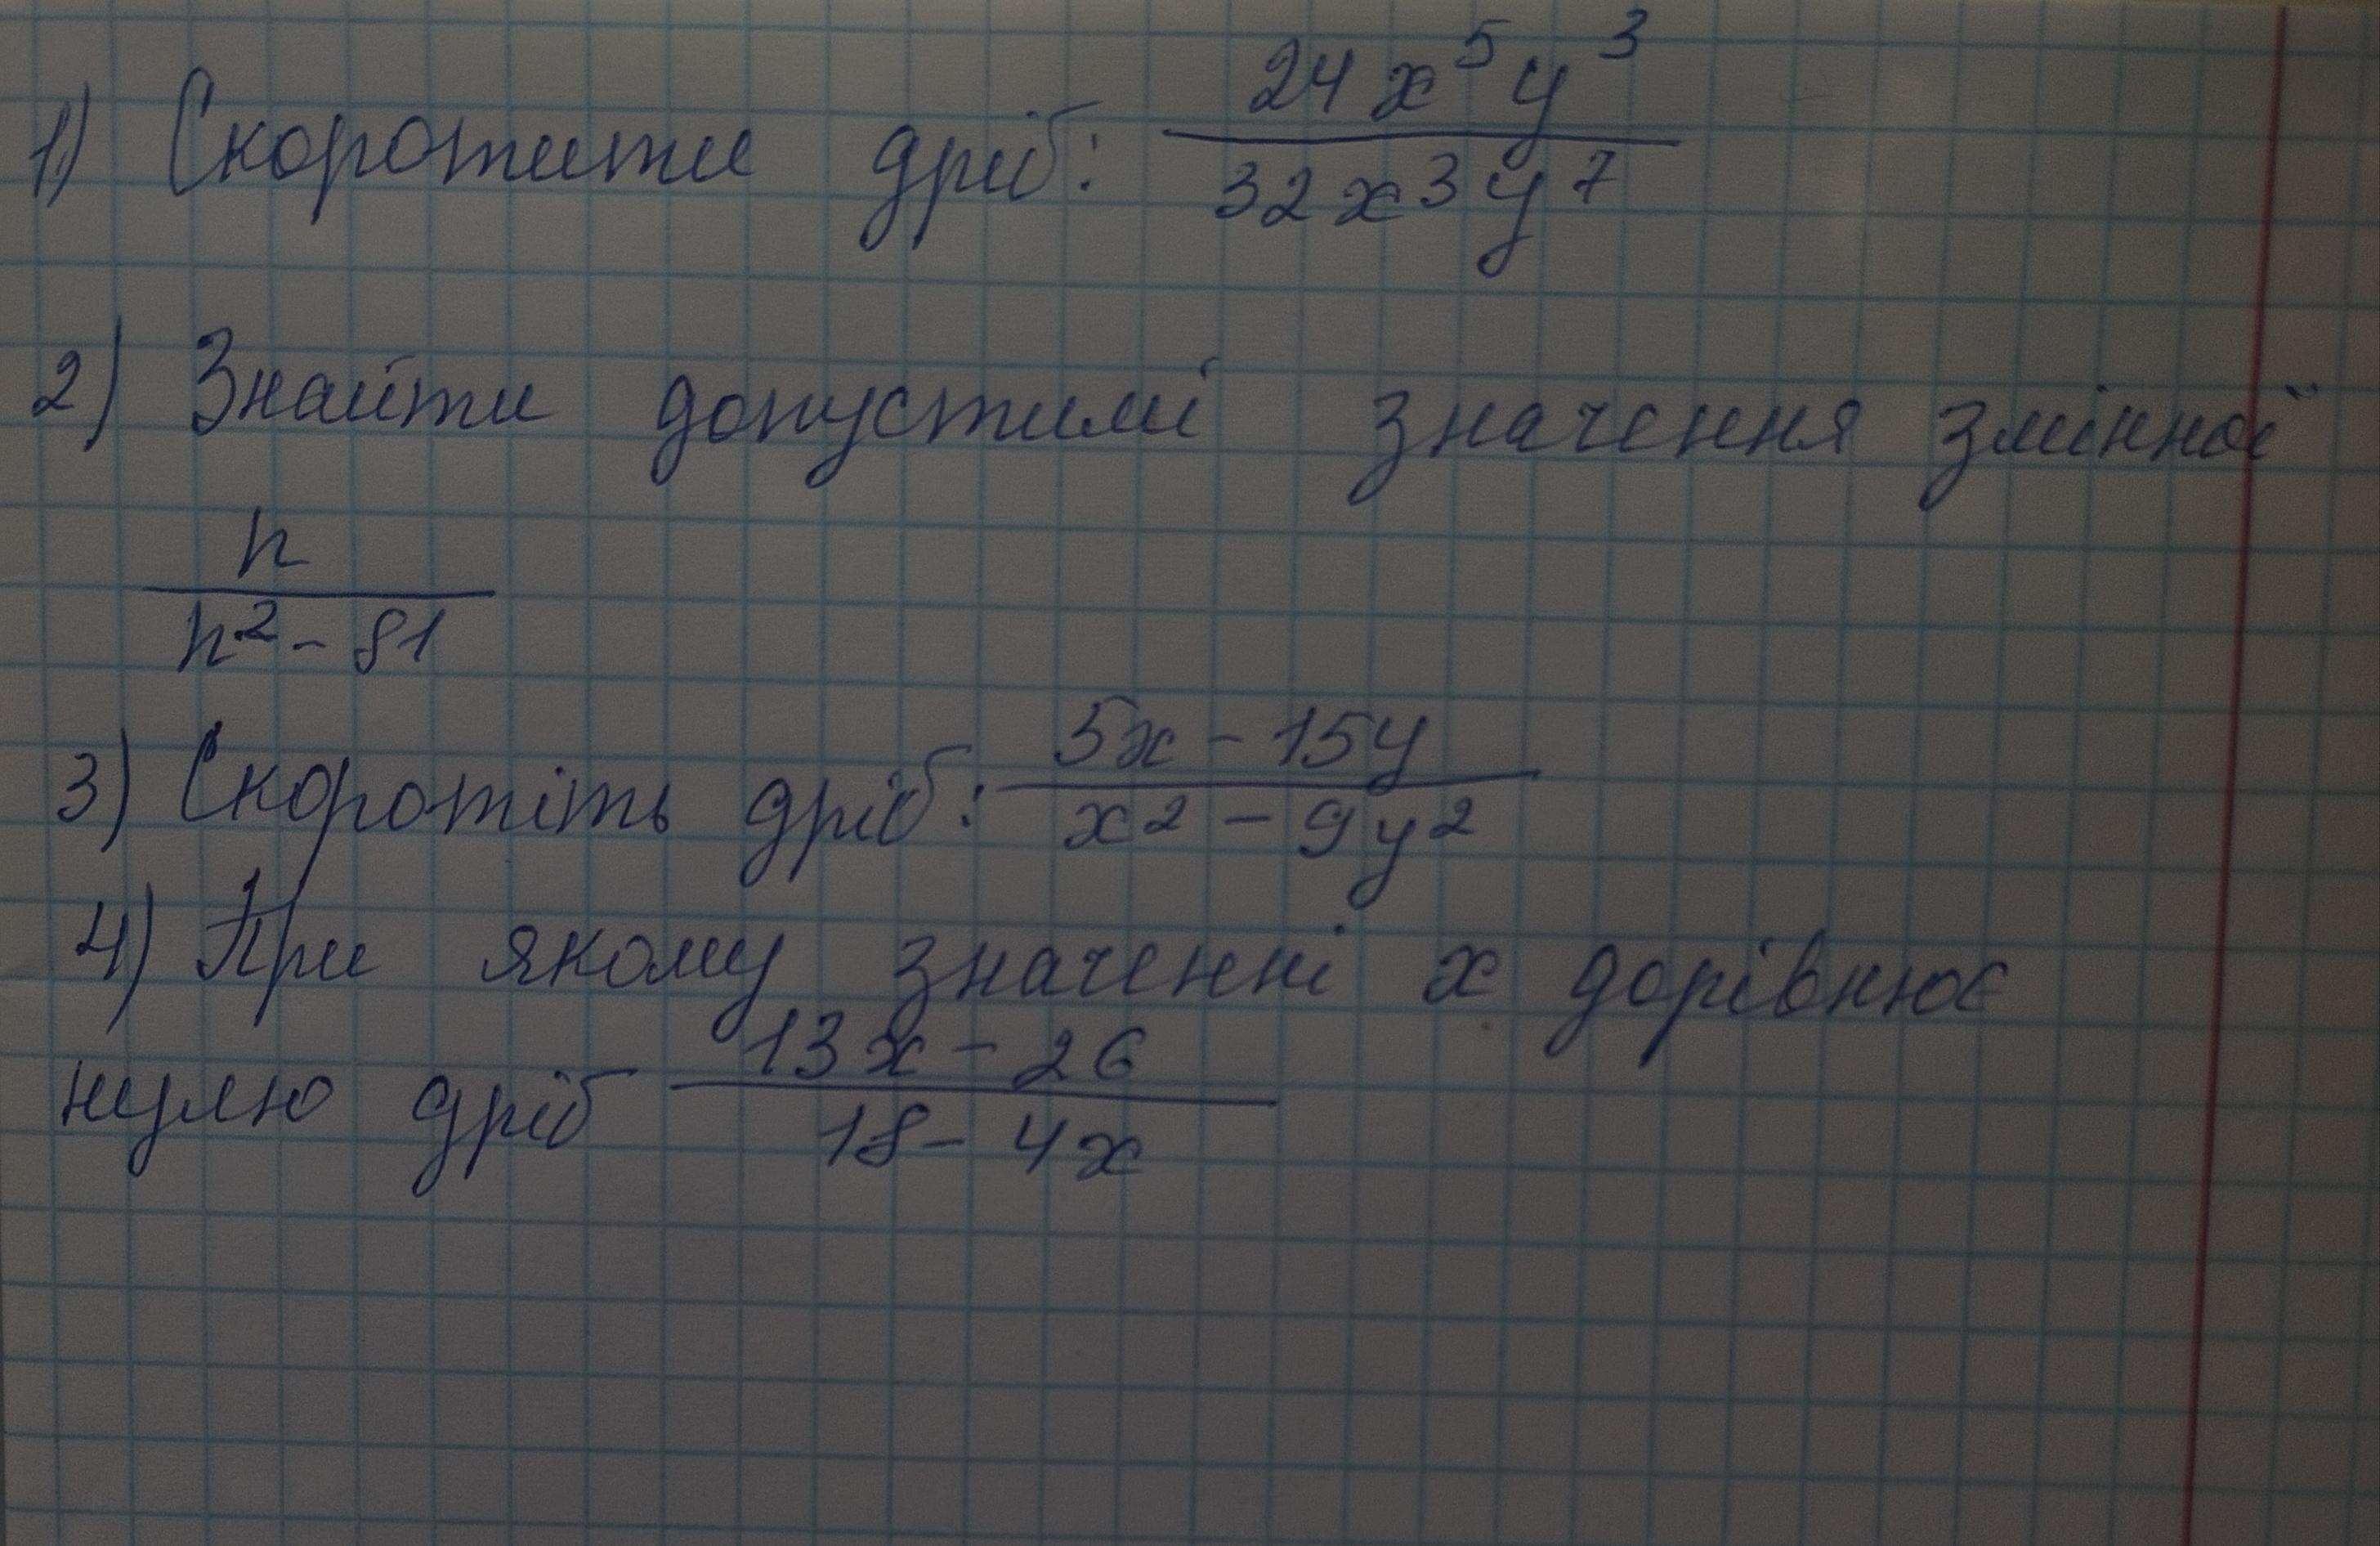 1) Скоротити дріб: 24x⁵y³/32x³y⁷
2) Знайти допустимі значення змінної
n/n² - 81
3) Скоротіть дріб: 5x - 15y/x² - 9y²
4) При якому значенні x дорівнює
нулю дріб 13x - 26/18 - 4x